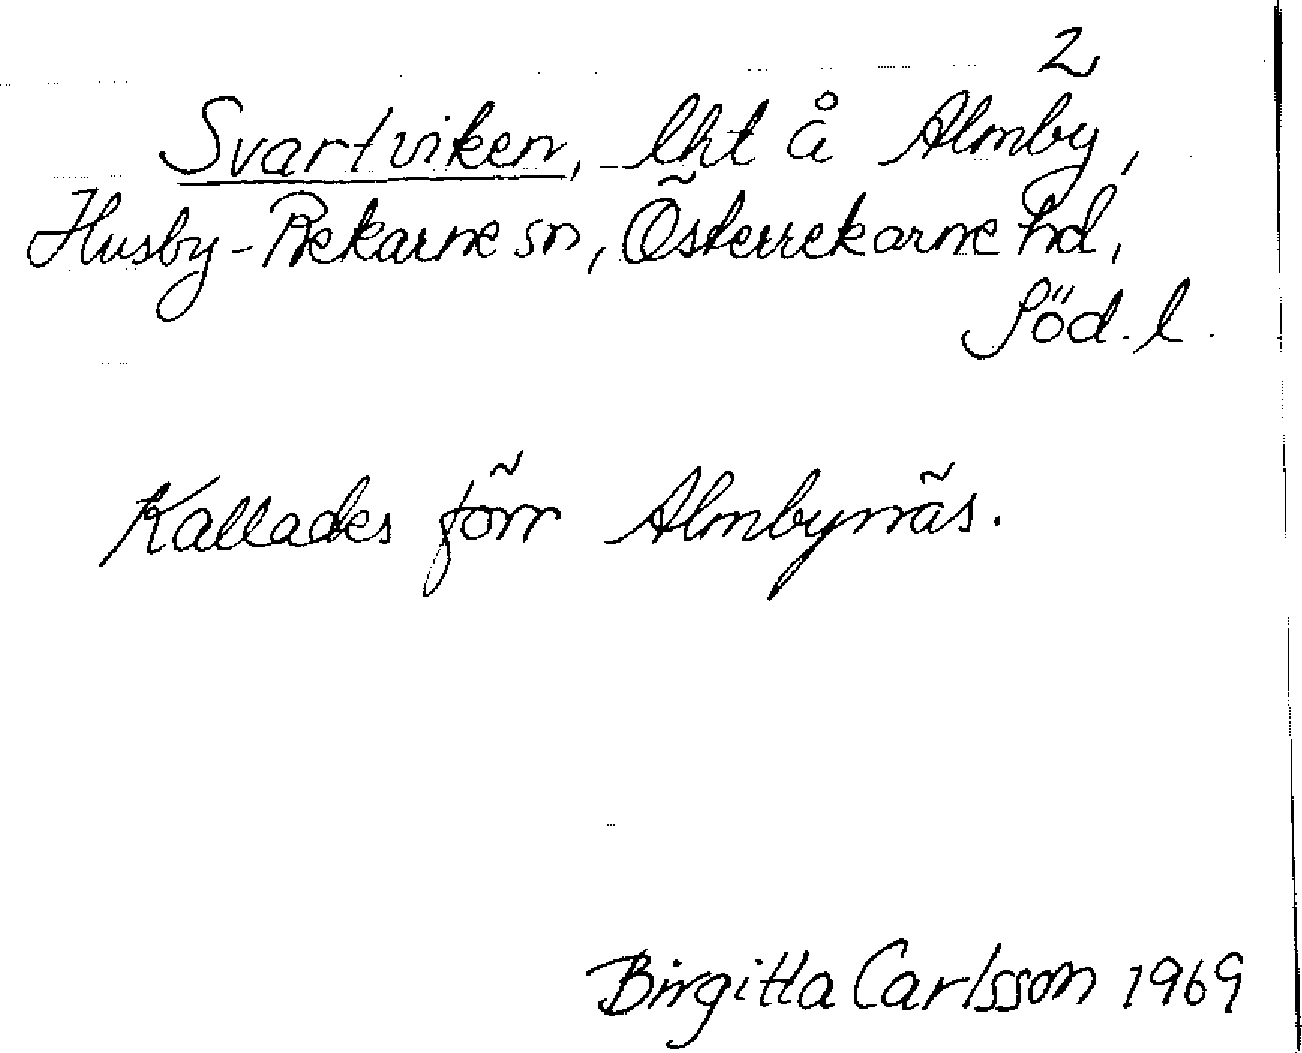 2
Svartviken, lht å Almby,
Husby-Rekarne sn, Österrekarne hd,
Söd. l.
Kallades förr Almbynäs.
Birgitta Carlsson 1969